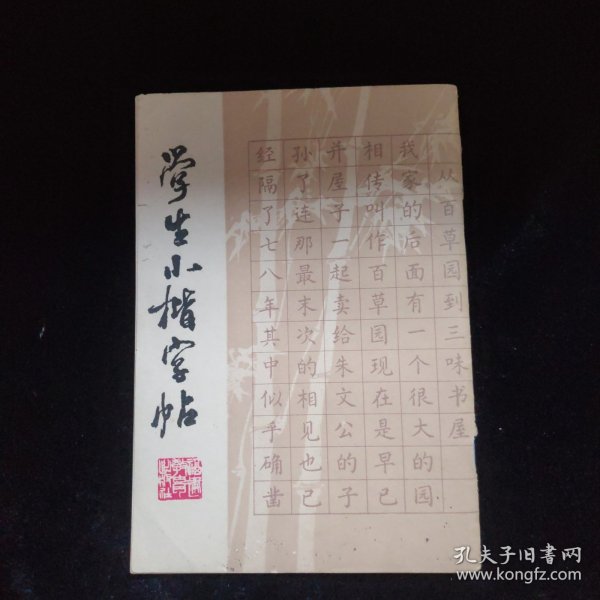 學生小楷字帖
福建教育出版社
从百草园到三味书屋
我家的后面有一个很大的园
相传叫作百草园现在是早已
并屋子一起卖给朱文公的子
孙了连那最末次的相见也已
经隔了七八年其中似乎确凿
孔夫子旧书网
www.kongfz.com